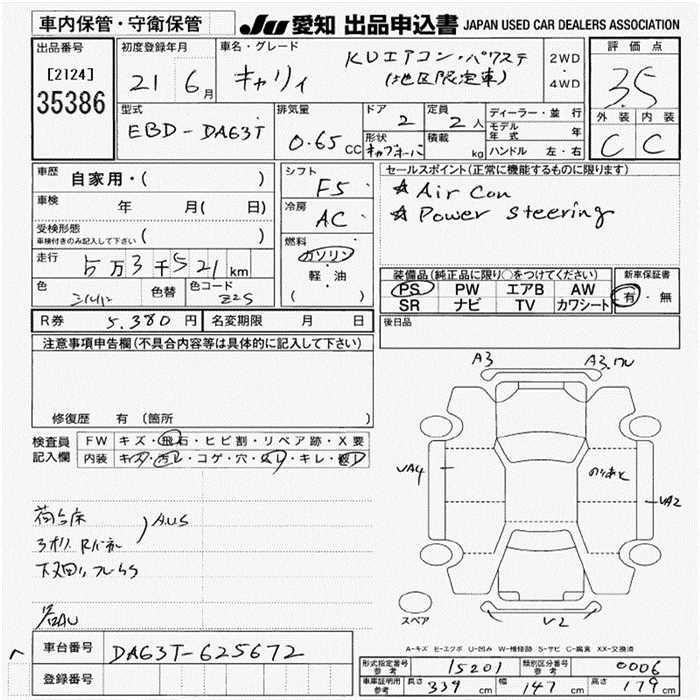 車内保管・守衛保管
JU 愛知 出品申込書 JAPAN USED CAR DEALERS ASSOCIATION
出品番号
[2124]
35386
初度登録年月
21 6月
車名・グレード
キャリィ
KUエアコン・パワステ
(地区限定車)
2WD
・
4WD
評価点
3.5
外装 内装
C C
型式
EBD-DA63T
排気量
0.65 CC
ドア
2
定員
2人
形状
キャブオーバ
積載
kg
ディーラー・並行
モデル年式 年
ハンドル 左・右
車歴
自家用・( )
車検
年 月( 日)
受検形態
車検付きのみ記入して下さい ( )
走行
5万3千521km
色
シルバー
色替
色コード
Z2S
シフト
F5
冷房
AC
燃料
ガソリン
・
軽・油
( )
セールスポイント(正常に機能するものに限ります)
☆ Air Con
☆ Power steering
装備品(純正品に限り○をつけてください)
PS PW エアB AW
SR ナビ TV カワシート
新車保証書
有・無
後日品
R券 5,380円 名変期限 月 日
注意事項申告欄(不具合内容等は具体的に記入して下さい)
修復歴 有(箇所 )
検査員
記入欄
FW キズ・飛石・ヒビ割・リペア跡・X要
内装 キズ・汚レ・コゲ・穴・スレ・キレ・破レ
荷台床
AUS
下廻りフレS
各AU
A3
A3.ワレ
UA4
UA2
スペア
V2
A-キズ E-エクボ U-凹み W-補修跡 S-サビ C-腐食 XX-交換済
車台番号 DA63T-625672
登録番号
形式指定番号 参考 15201 類別区分番号 参考 0006
車庫証明用 参考 長さ 339cm 幅 147cm 高さ 179cm